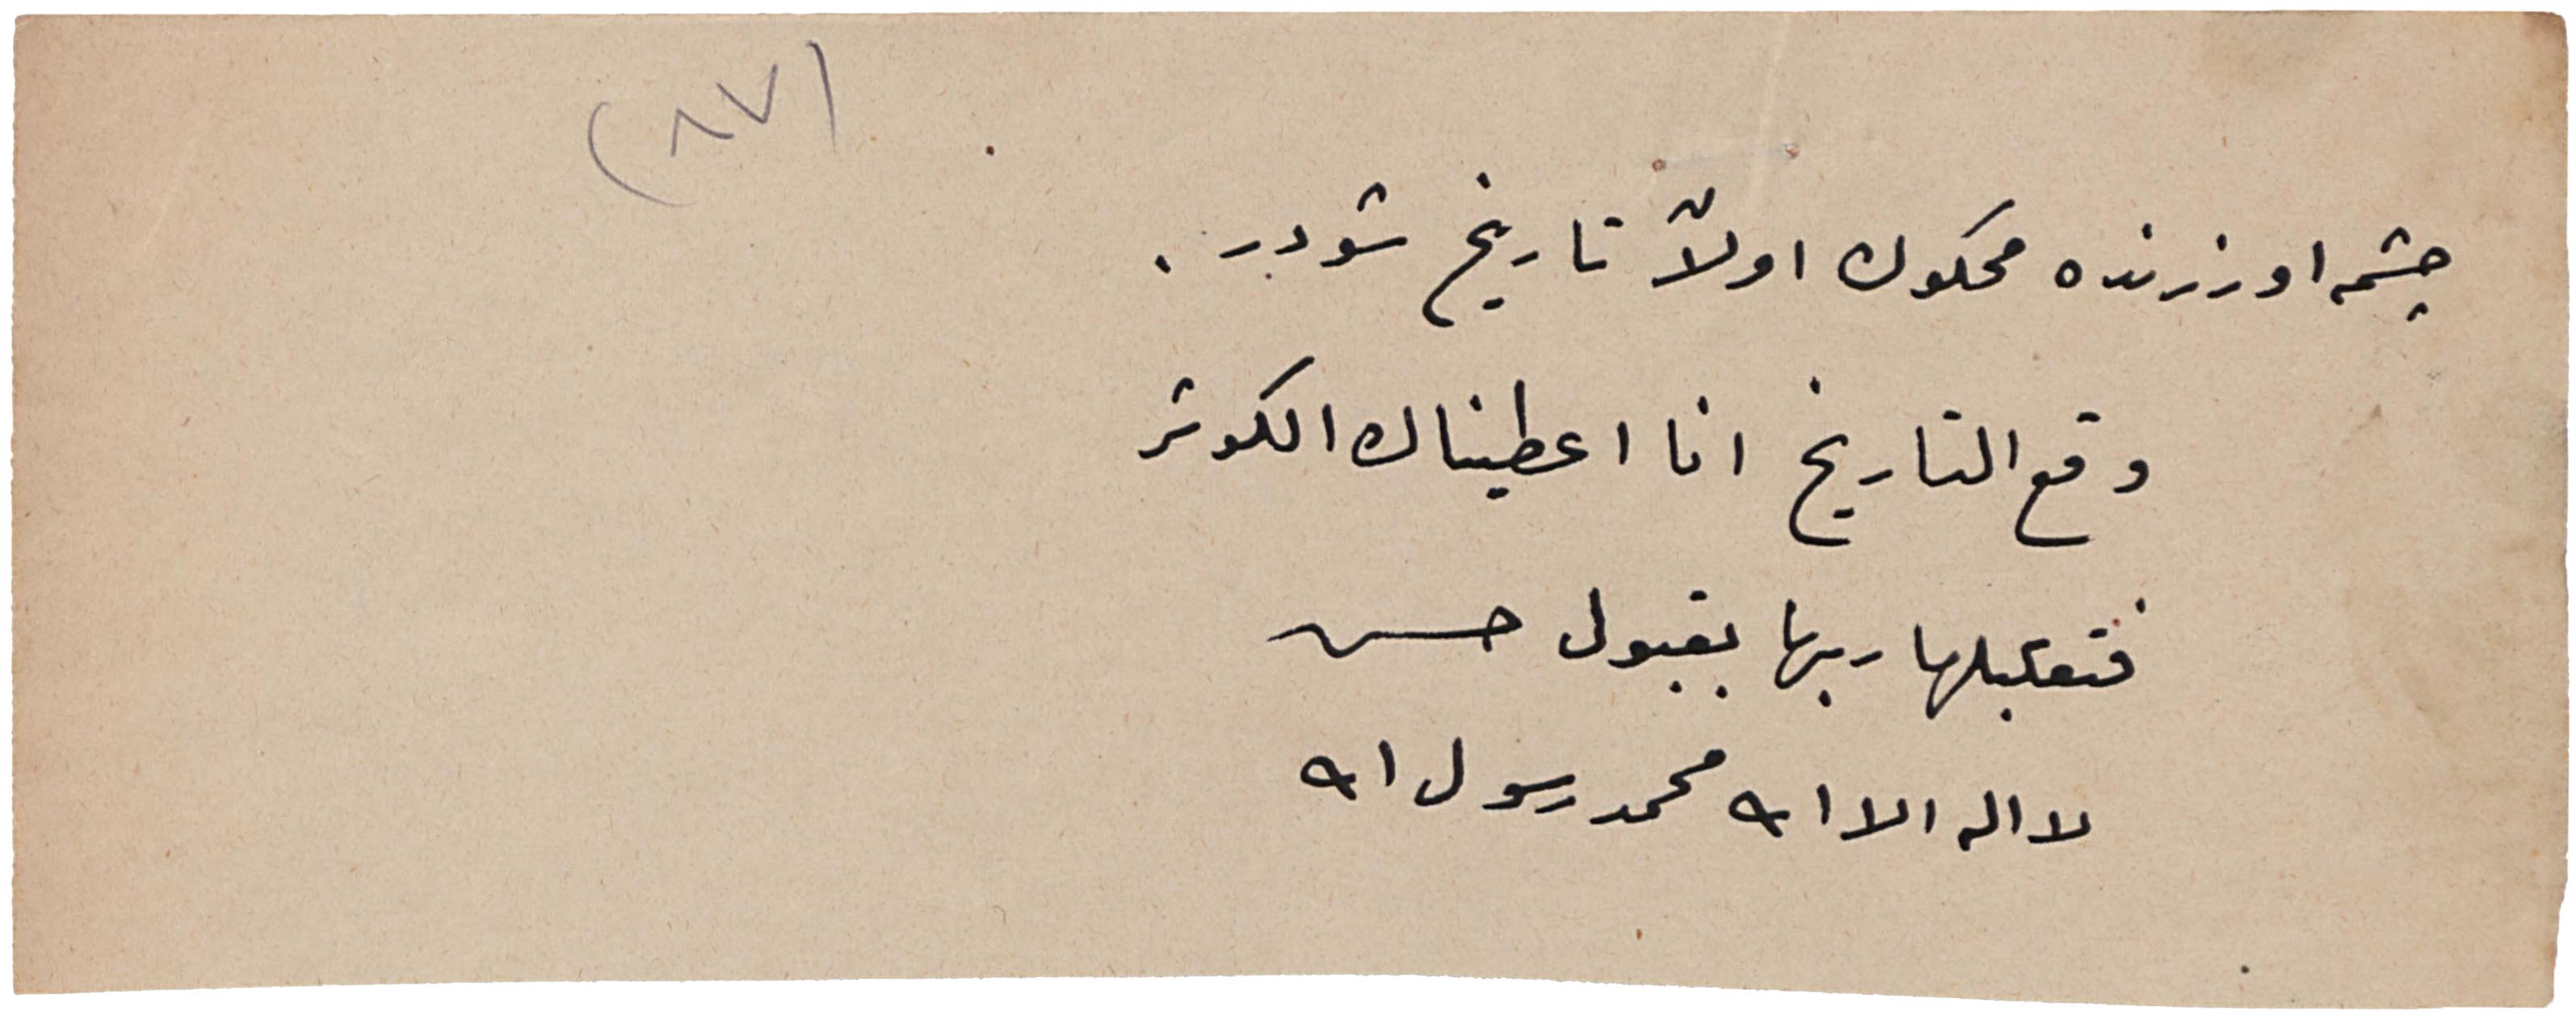 (٨٧)
چشمه اوزرنده محكوك اولان تاريخ شودر .
وقع التاريخ انا اعطيناك الكوثر
فتقبلها ربها بقبول حسن
لا اله الا الله محمد رسول الله